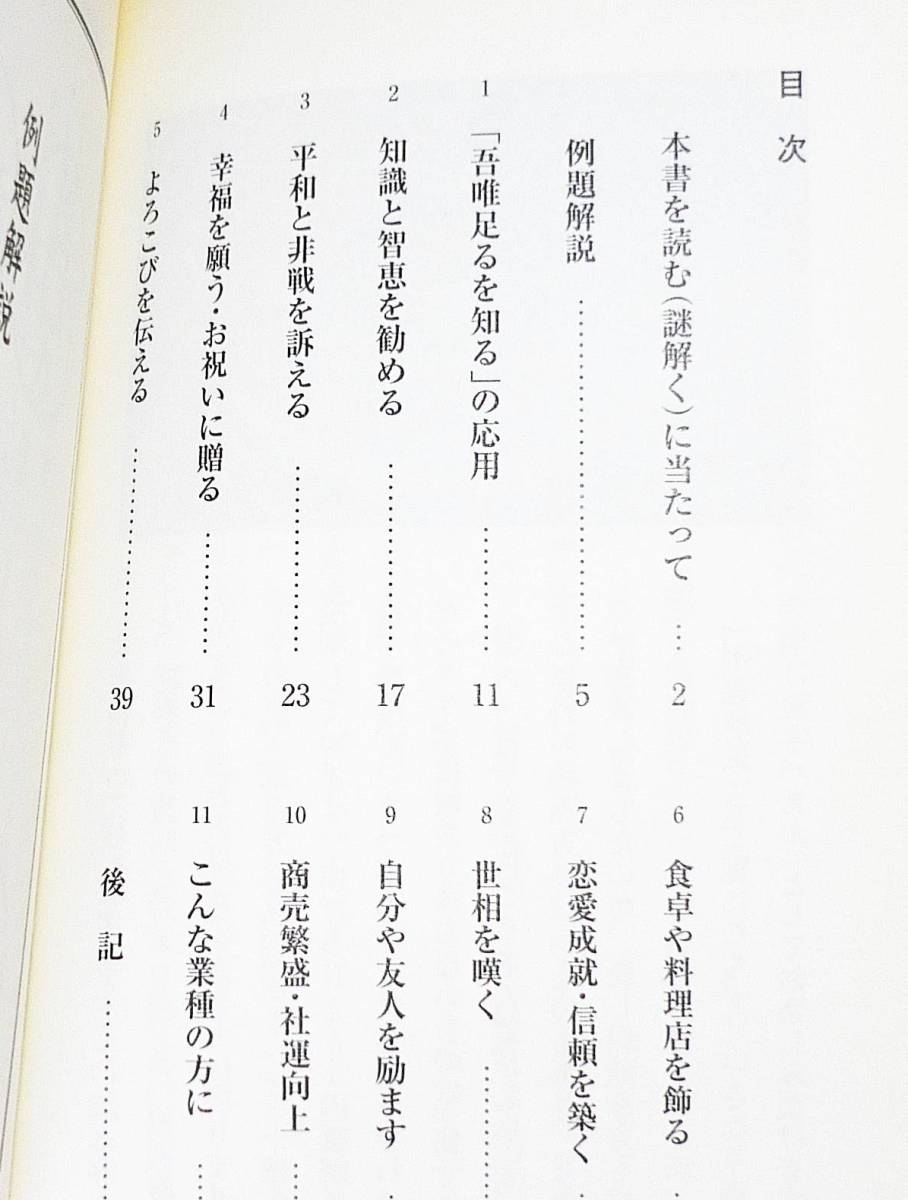 目次
本書を読む（謎解く）に当たって … 2
例題解説 ………… 5
1 「吾唯足るを知る」の応用 ………… 11
2 知識と智恵を勧める ………… 17
3 平和と非戦を訴える ………… 23
4 幸福を願う・お祝いに贈る ………… 31
5 よろこびを伝える ………… 39
6 食卓や料理店を飾る
7 恋愛成就・信頼を築く
8 世相を嘆く …………
9 自分や友人を励ます
10 商売繁盛・社運向上 …
11 こんな業種の方に …
後記 …………
例題解説